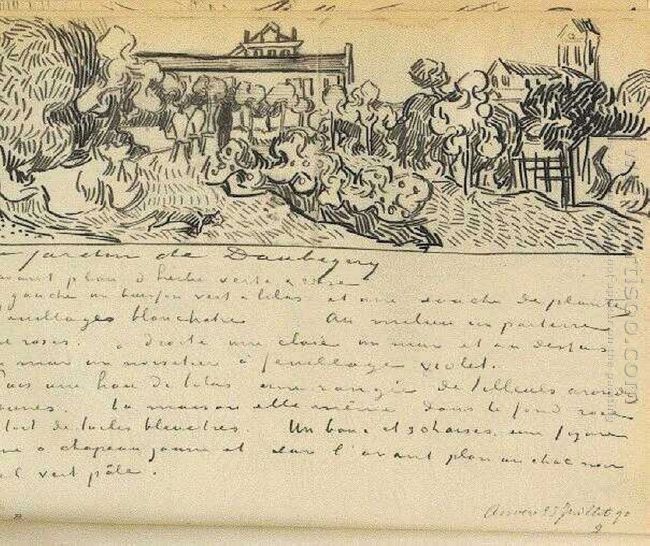 jardin de Daubigny
avant plan d'herbe verte & rose
gauche un buisson vert & lilas et une souche de plantes
feuillages blanchatres Au milieu un parterre
roses. à droite une claie un mur et au dessus
mur un noisetier à feuillage violet.
Puis une haie de lilas une rangée de tilleuls arrondis
jaunes. La maison elle-même dans le fond rose
toit de tuiles bleuâtres. Un banc et 3 chaises, une figure
à chapeau jaune et sur l'avant plan un chat noir
vert pâle.
Auvers 23 Juillet 90
artisoo.com